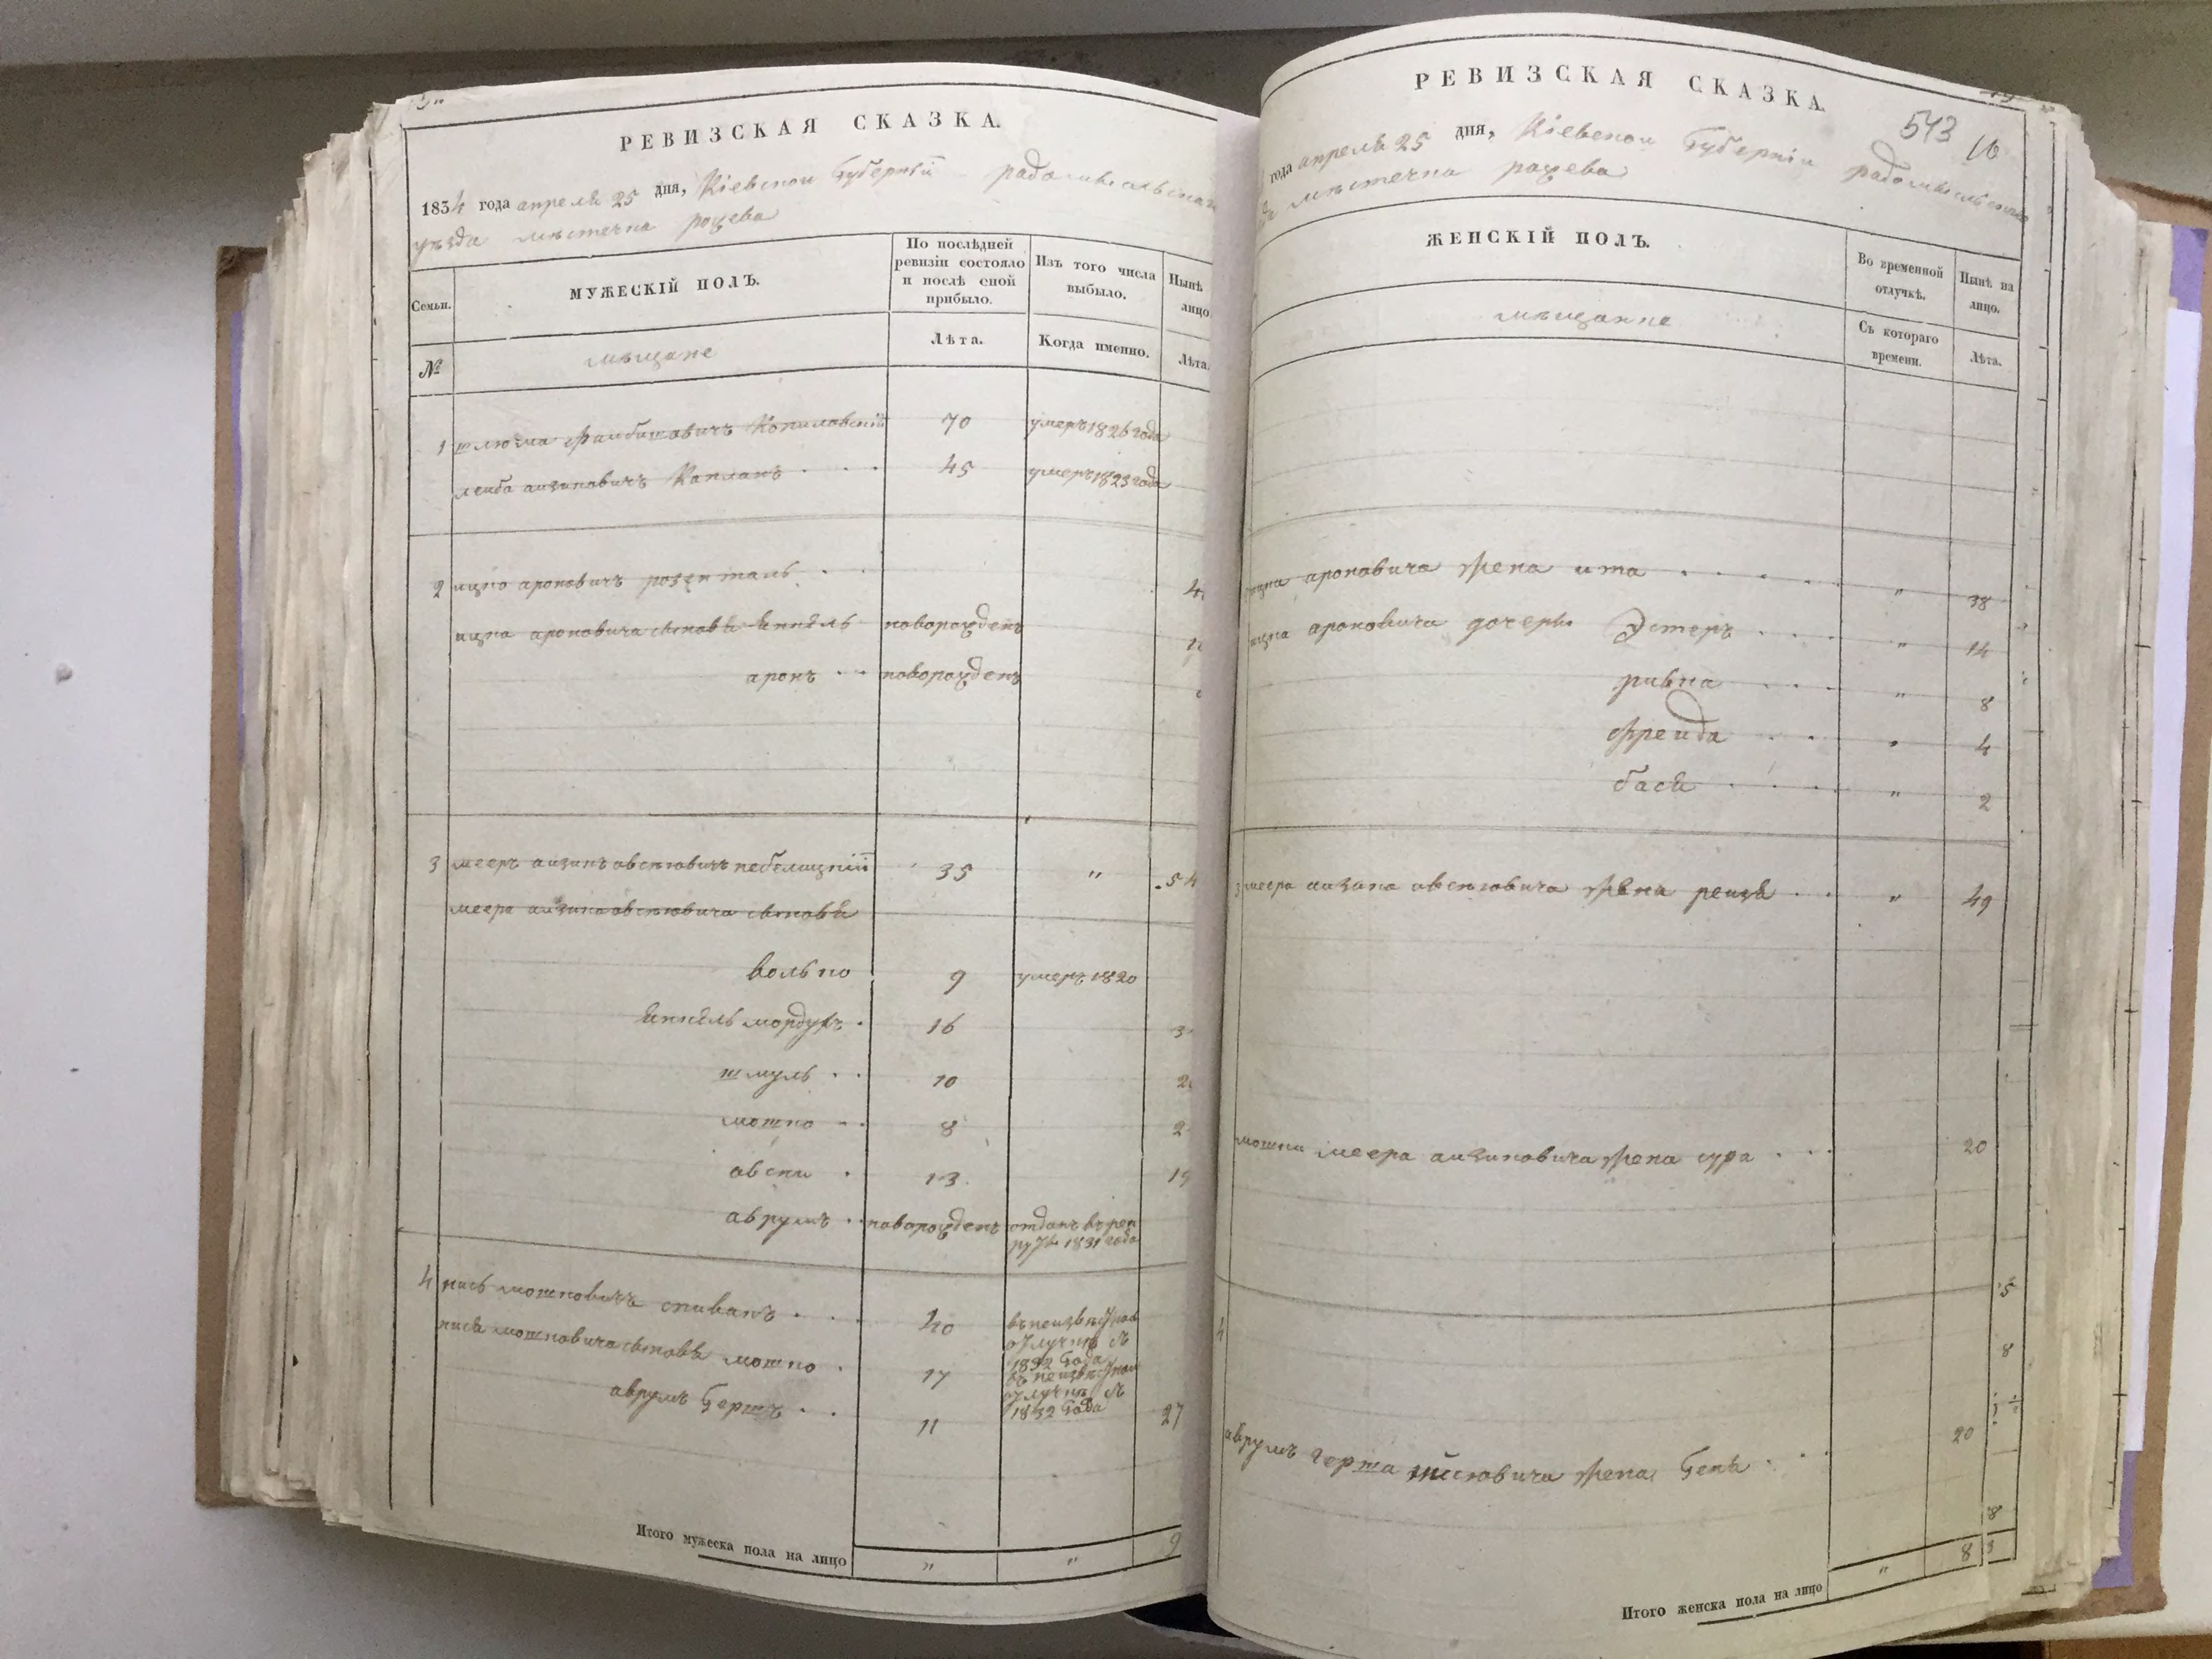 РЕВИЗСКАЯ СКАЗКА.
1834 года апреля 25 дня, Кіевской Губерніи радомысльскаго
уѣзда мѣстечка рожева
Семьи.
МУЖЕСКІЙ ПОЛЪ.
По послѣдней ревизіи состояло и послѣ сной прибыло.
Изъ того числа выбыло.
Нынѣ лицо
№
мѣщане
Лѣта.
Когда именно.
Лѣта.
1 шлиома Файбишовичъ Копиловскій 70 умеръ 1826 года
лейба аизиковичъ Капланъ 45 умеръ 1823 года
2 ицко ароновичъ розенталь 4
ицка ароновича сыновя Янкель новорожденъ
аронъ новорожденъ
3 мееръ аизикъ овсѣювичъ небелицкій 35 " 54
меера аизика овсѣювича сыновя
волько 9 умеръ 1820
Янкель мордухъ 16 3
шмуль 10 2
мошко 8 2
овсѣи 13 19
аврумъ новорожденъ отданъ въ рек
руты 1831 года
4 мошковичъ спивакъ 40 въ неизвѣстной
отлучкѣ съ
1832 Года
мошковича сыновя мошко 17 въ неизвѣстной
отлучкѣ съ
1832 Года
аврумъ Гершъ 11 27
Итого мужеска пола на лицо " " 9
РЕВИЗСКАЯ СКАЗКА.
543
16
года апреля 25 дня, Кіевской Губерніи радомысльскаго
мѣстечка рожева
ЖЕНСКІЙ ПОЛЪ.
Во временной отлучкѣ.
Нынѣ на лицо.
мѣщанне
Съ котораго времени.
Лѣта.
ицка ароновича жена ита " 38
ицка ароновича дочери Эстеръ " 14
ривка " 8
Фрейда " 4
бася " 2
3 меера аизика овсѣювича жена рейзя " 49
мошки меера аизиковича жена сура 20
4
аврумъ герша жена Геня 20
Итого женска пола на лицо " 8